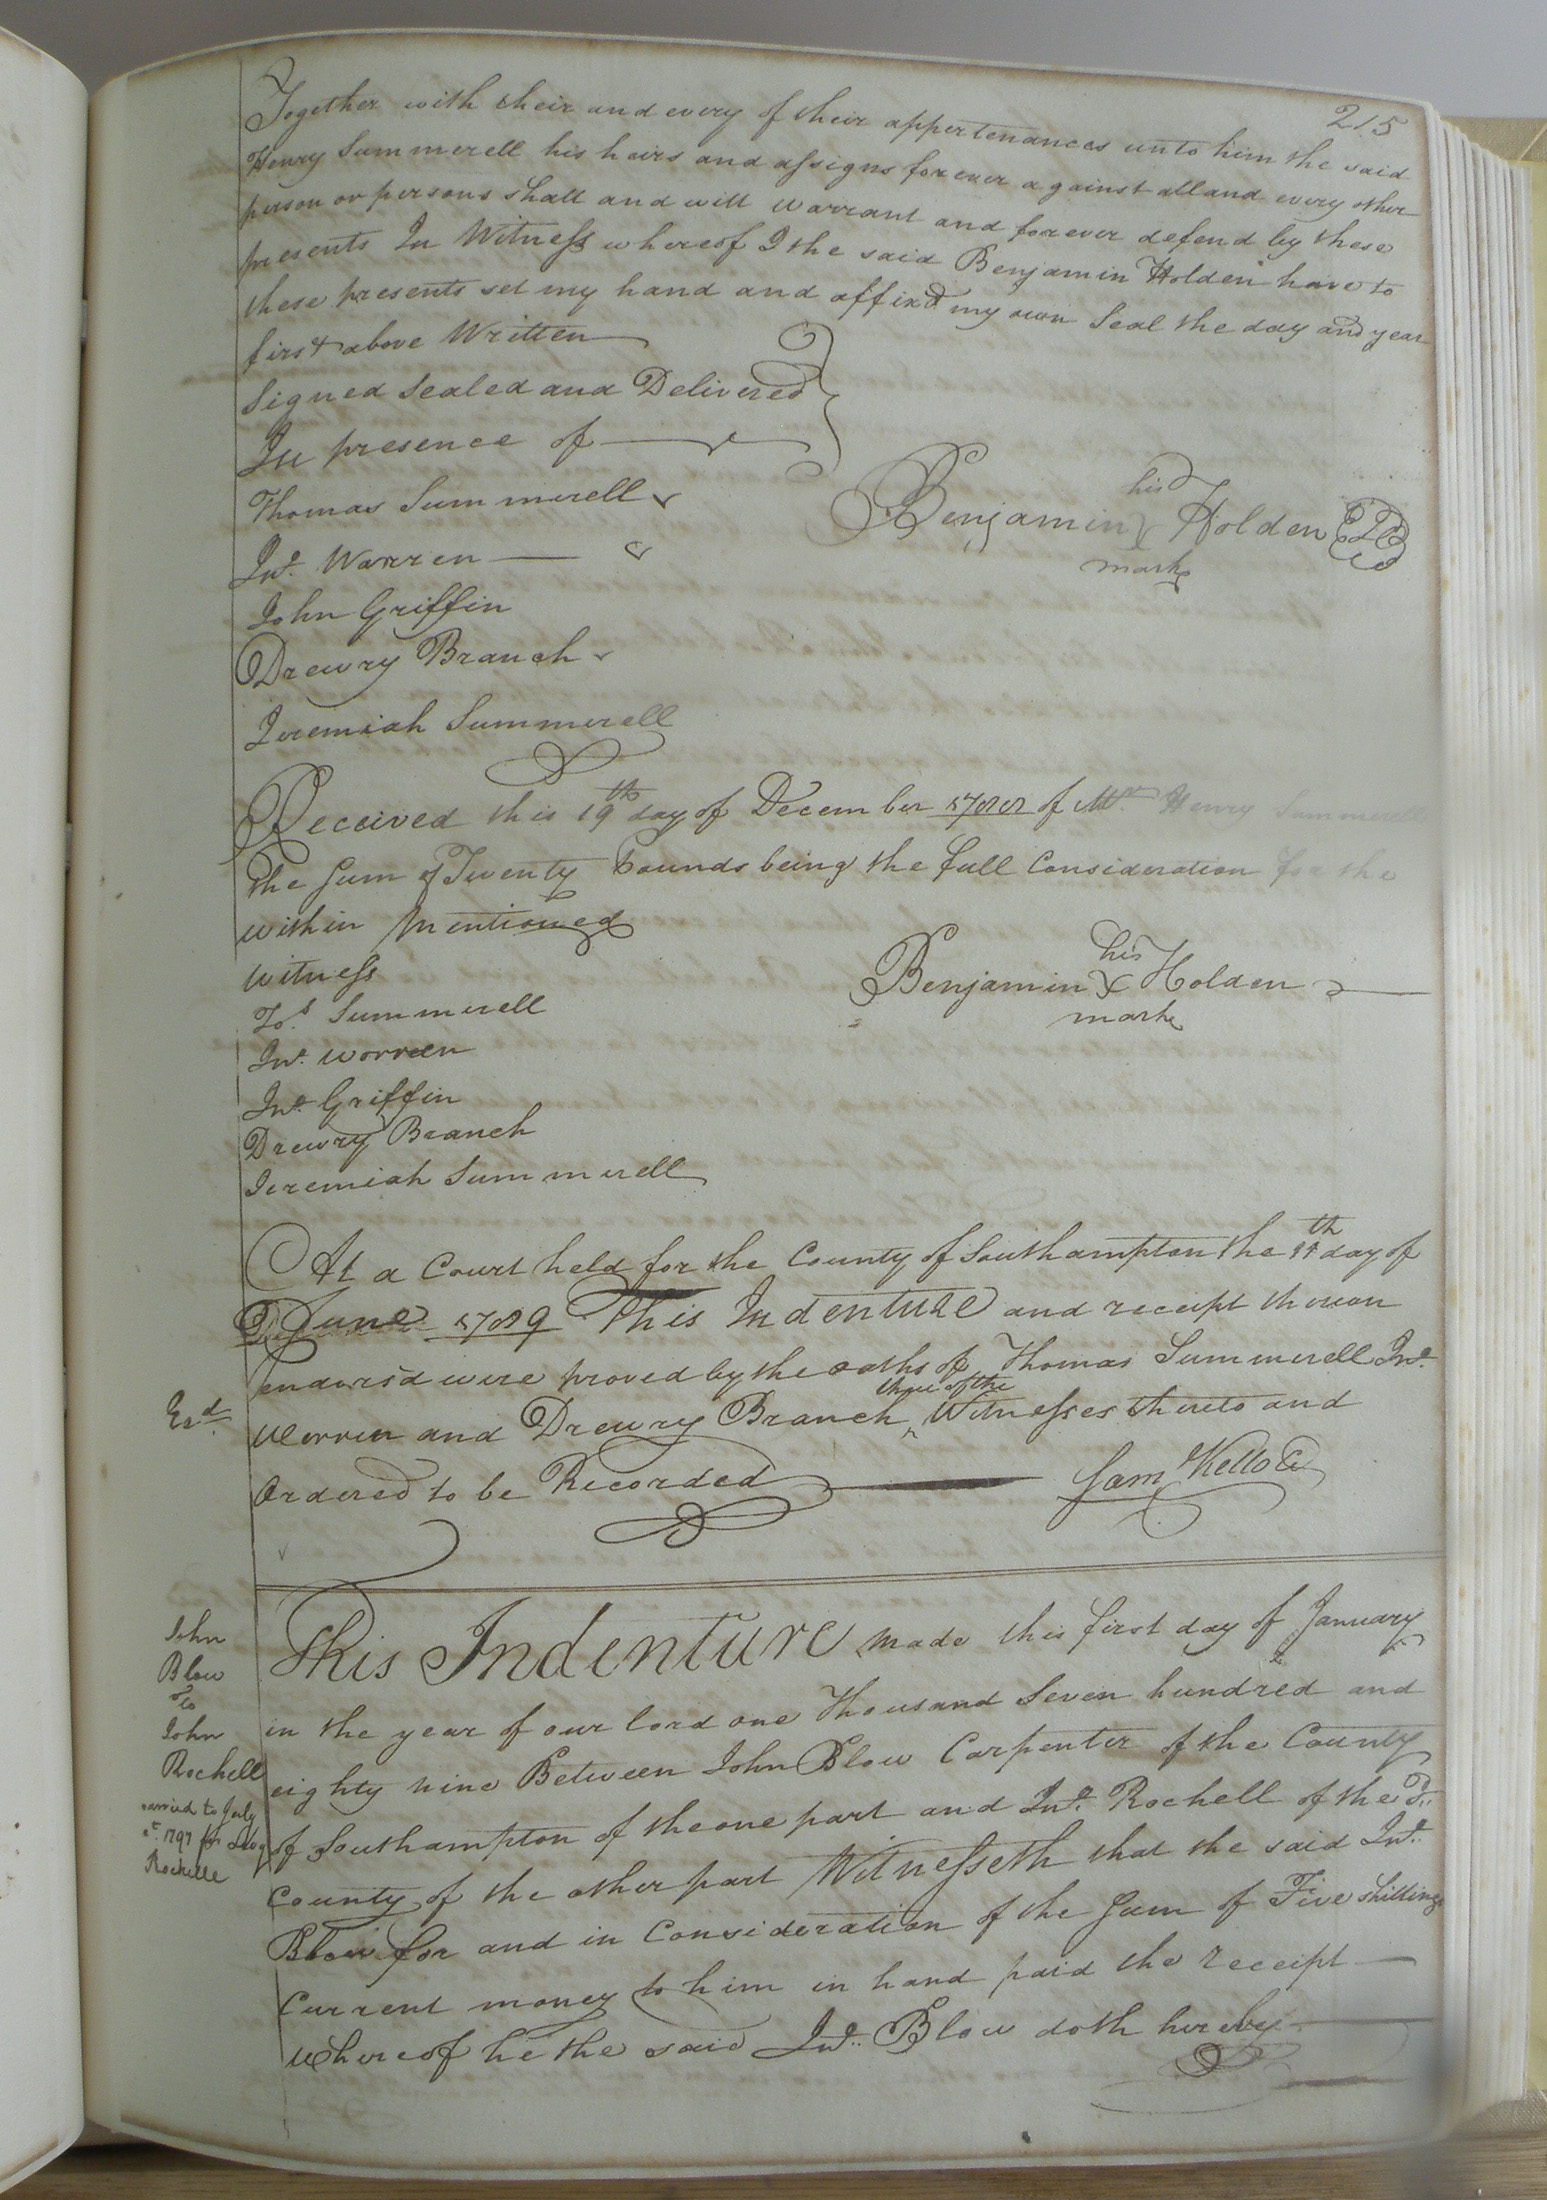 215
Together with their and every of their appertenances unto him the said
Henry Summerell his heirs and assigns forever against all and every other
person or persons shall and will warrant and forever defend by these
presents In Witness whereof I the said Benjamin Holden have to
these presents set my hand and affixd my own Seal the day and year
first above Written
Signed Sealed and Delivered
In presence of
Thomas Summerell
Jno. Warren
John Griffin
Drewry Branch
Jeremiah Summerell
his
Benjamin Holden
mark
Received this 19th day of December 1788 of Mr. Henry Summerell
the Sum of Twenty Pounds being the full Consideration for the
within Mentioned
Witness
Tos. Summerell
Jno. Worreen
Jno. Griffin
Drewry Branch
Jeremiah Summerell
his
Benjamin X Holden
mark
At a Court held for the County of Southampton the 11th day of
June 1789 This Indenture and receipt thereon
endorsd were proved by the oaths of Thomas Summerell Jno.
three of the
Worren and Drewry Branch ^ Witnesses thereto and
Ordered to be Recorded
Sam Kello C
Exd.
John
Blow
To
John
Rochell
carried to July
Ct. 1797 for
Rochelle
This Indenture made this first day of January
in the year of our lord one Thousand Seven hundred and
eighty nine Between John Blow Carpenter of the County
of Southampton of the one part and Jno. Rochell of the sd.
County of the other part Witnesseth that the said Jno.
Blow for and in Consideration of the Sum of Five Shillings
Current money to him in hand paid the receipt
Whereof he the said Jno. Blow doth hereby